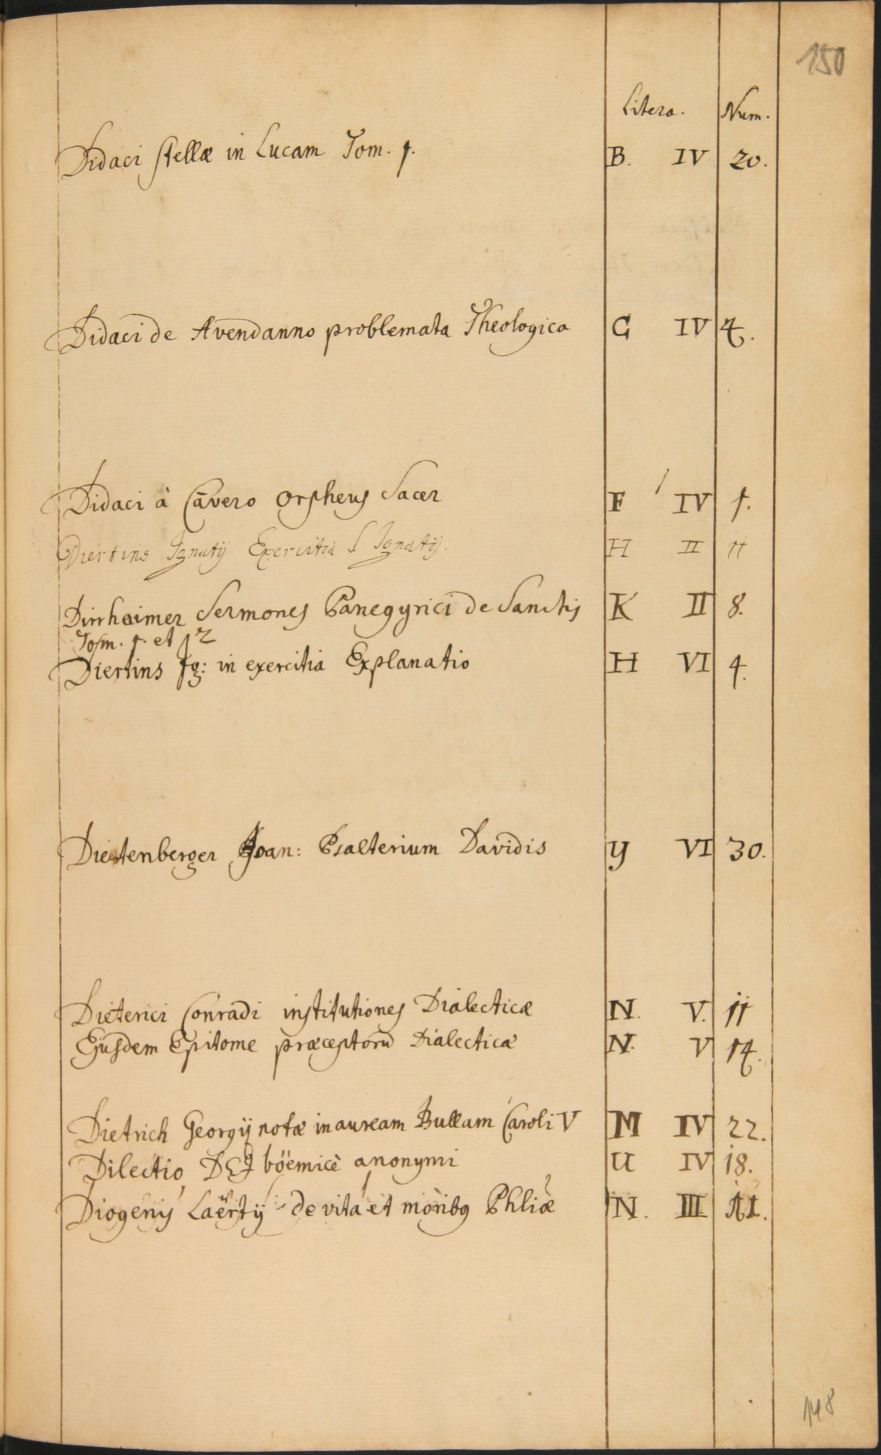 150
Litera. Num.
Didaci Stellæ in Lucam Tom. 1. B. IV 20.
Didaci de Avendanno problemata Theologica G IV 4.
Didaci à Cavero Orpheus Sacer F IV 1.
Diertins Ignatij Exercitia S Ignatij. H II 11
Dirrhaimer Sermones Panegyrici de Sanctis K II 8.
Tom. 1. et 2
Diertins Ig: in exercitia Explanatio H VI 4.
Dietenberger Joan: Psalterium Davidis Y VI 30.
Dieterici Conradi institutiones Dialecticæ N. V. 11
Ejusdem Epitome præceptorū Dialecticæ N. V 14.
Dietrich Georgij notæ in auream Bullam Caroli V M IV 22.
Dilectio DEI böemicè anonymi U IV 18.
Diogenis Laërtij de vita et moribq Phliæ N. III 11.
148